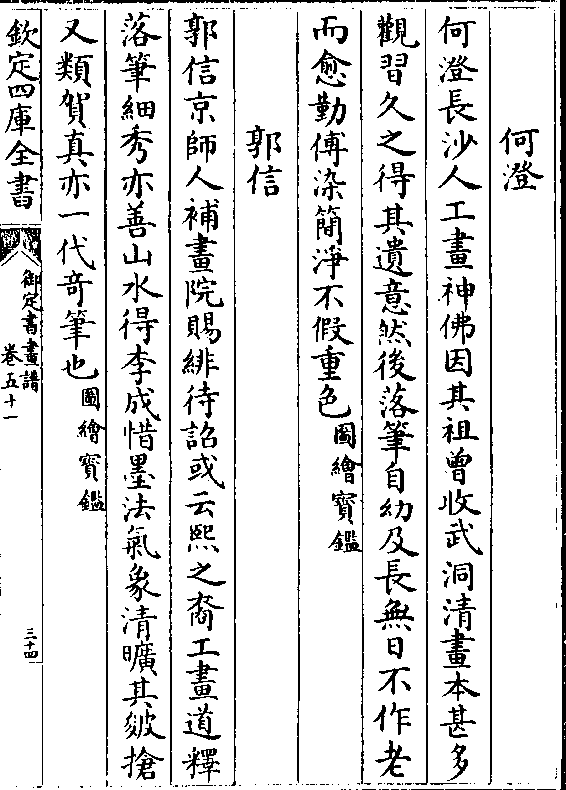 何澄
何澄長沙人工畫神佛因其祖曾收武洞清畫本甚多
觀習久之得其遺意然後落筆自幼及長無日不作老
而愈勤傅染簡淨不假重色圖繪寶鑑
郭信
郭信京師人補畫院賜緋待詔或云熙之裔工畫道釋
落筆細秀亦善山水得李成惜墨法氣象清曠其皴搶
又類賀真亦一代竒筆也圖繪寶鑑
欽定四庫全書
御定書畫譜
卷五十一
三十四